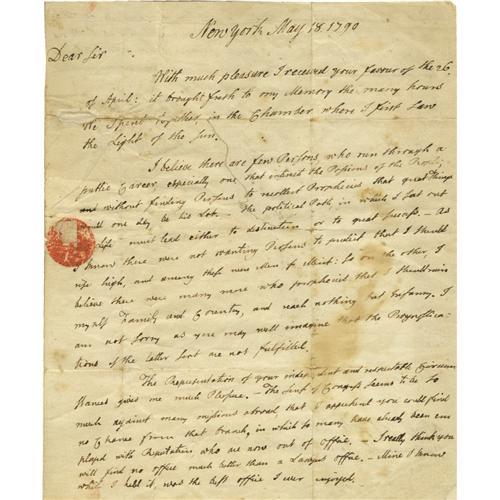 New york May 18. 1790
Dear Sir
With much pleasure I received your favour of the 26
of April: it brought fresh to my Memory the many hours
We Spent together in the Chamber where I first Saw
the Light of the Sun.
I believe there are few Persons, who run through a
public Career especially one that interest the Passions of the People,
without finding Persons to recollect Prophecies that great Things
would one day be his Lot. The political Path in which I Set out
in Life must lead either to distinction or to great . - As
I know there were not wanting Persons to predict that I Should
rise high, and among these were Men of Merit: So on the other, I
believe there were many more who prophecied that I Should ruin
my self Family and Country, and reach nothing but Infamy. I
am not Sorry as you may well imagine that the Prognostica-
tions of the latter Sort are not fulfilled.
The Representation of your independent and respectable Circum
Stances gives me much Pleasure. - The Sense of Congress Seems to be So
much against many missions abroad, that I apprehend you will find
no Chance from that branch, in which So many have already been em
ployed with Reputation who are now out of Office. - I really think you
will find no office much better than a Lawyers office. - Mine I know
while I held it, was the best office I ever enjoyed.